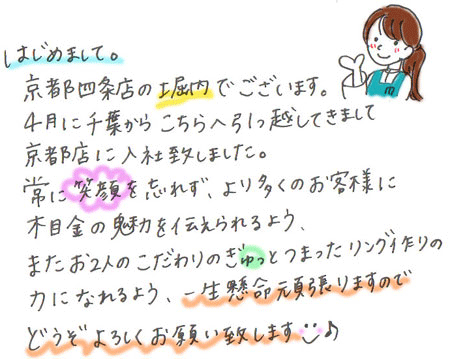 はじめまして。
京都四条店の堀内でございます。
4月に千葉からこちらへ引っ越してきまして
京都店に入社致しました。
常に笑顔を忘れず、より多くのお客様に
木目金の魅力を伝えられるよう、
またお2人のこだわりのぎゅっとつまったリング作りの
力になれるよう、一生懸命頑張りますので
どうぞよろしくお願い致します♪